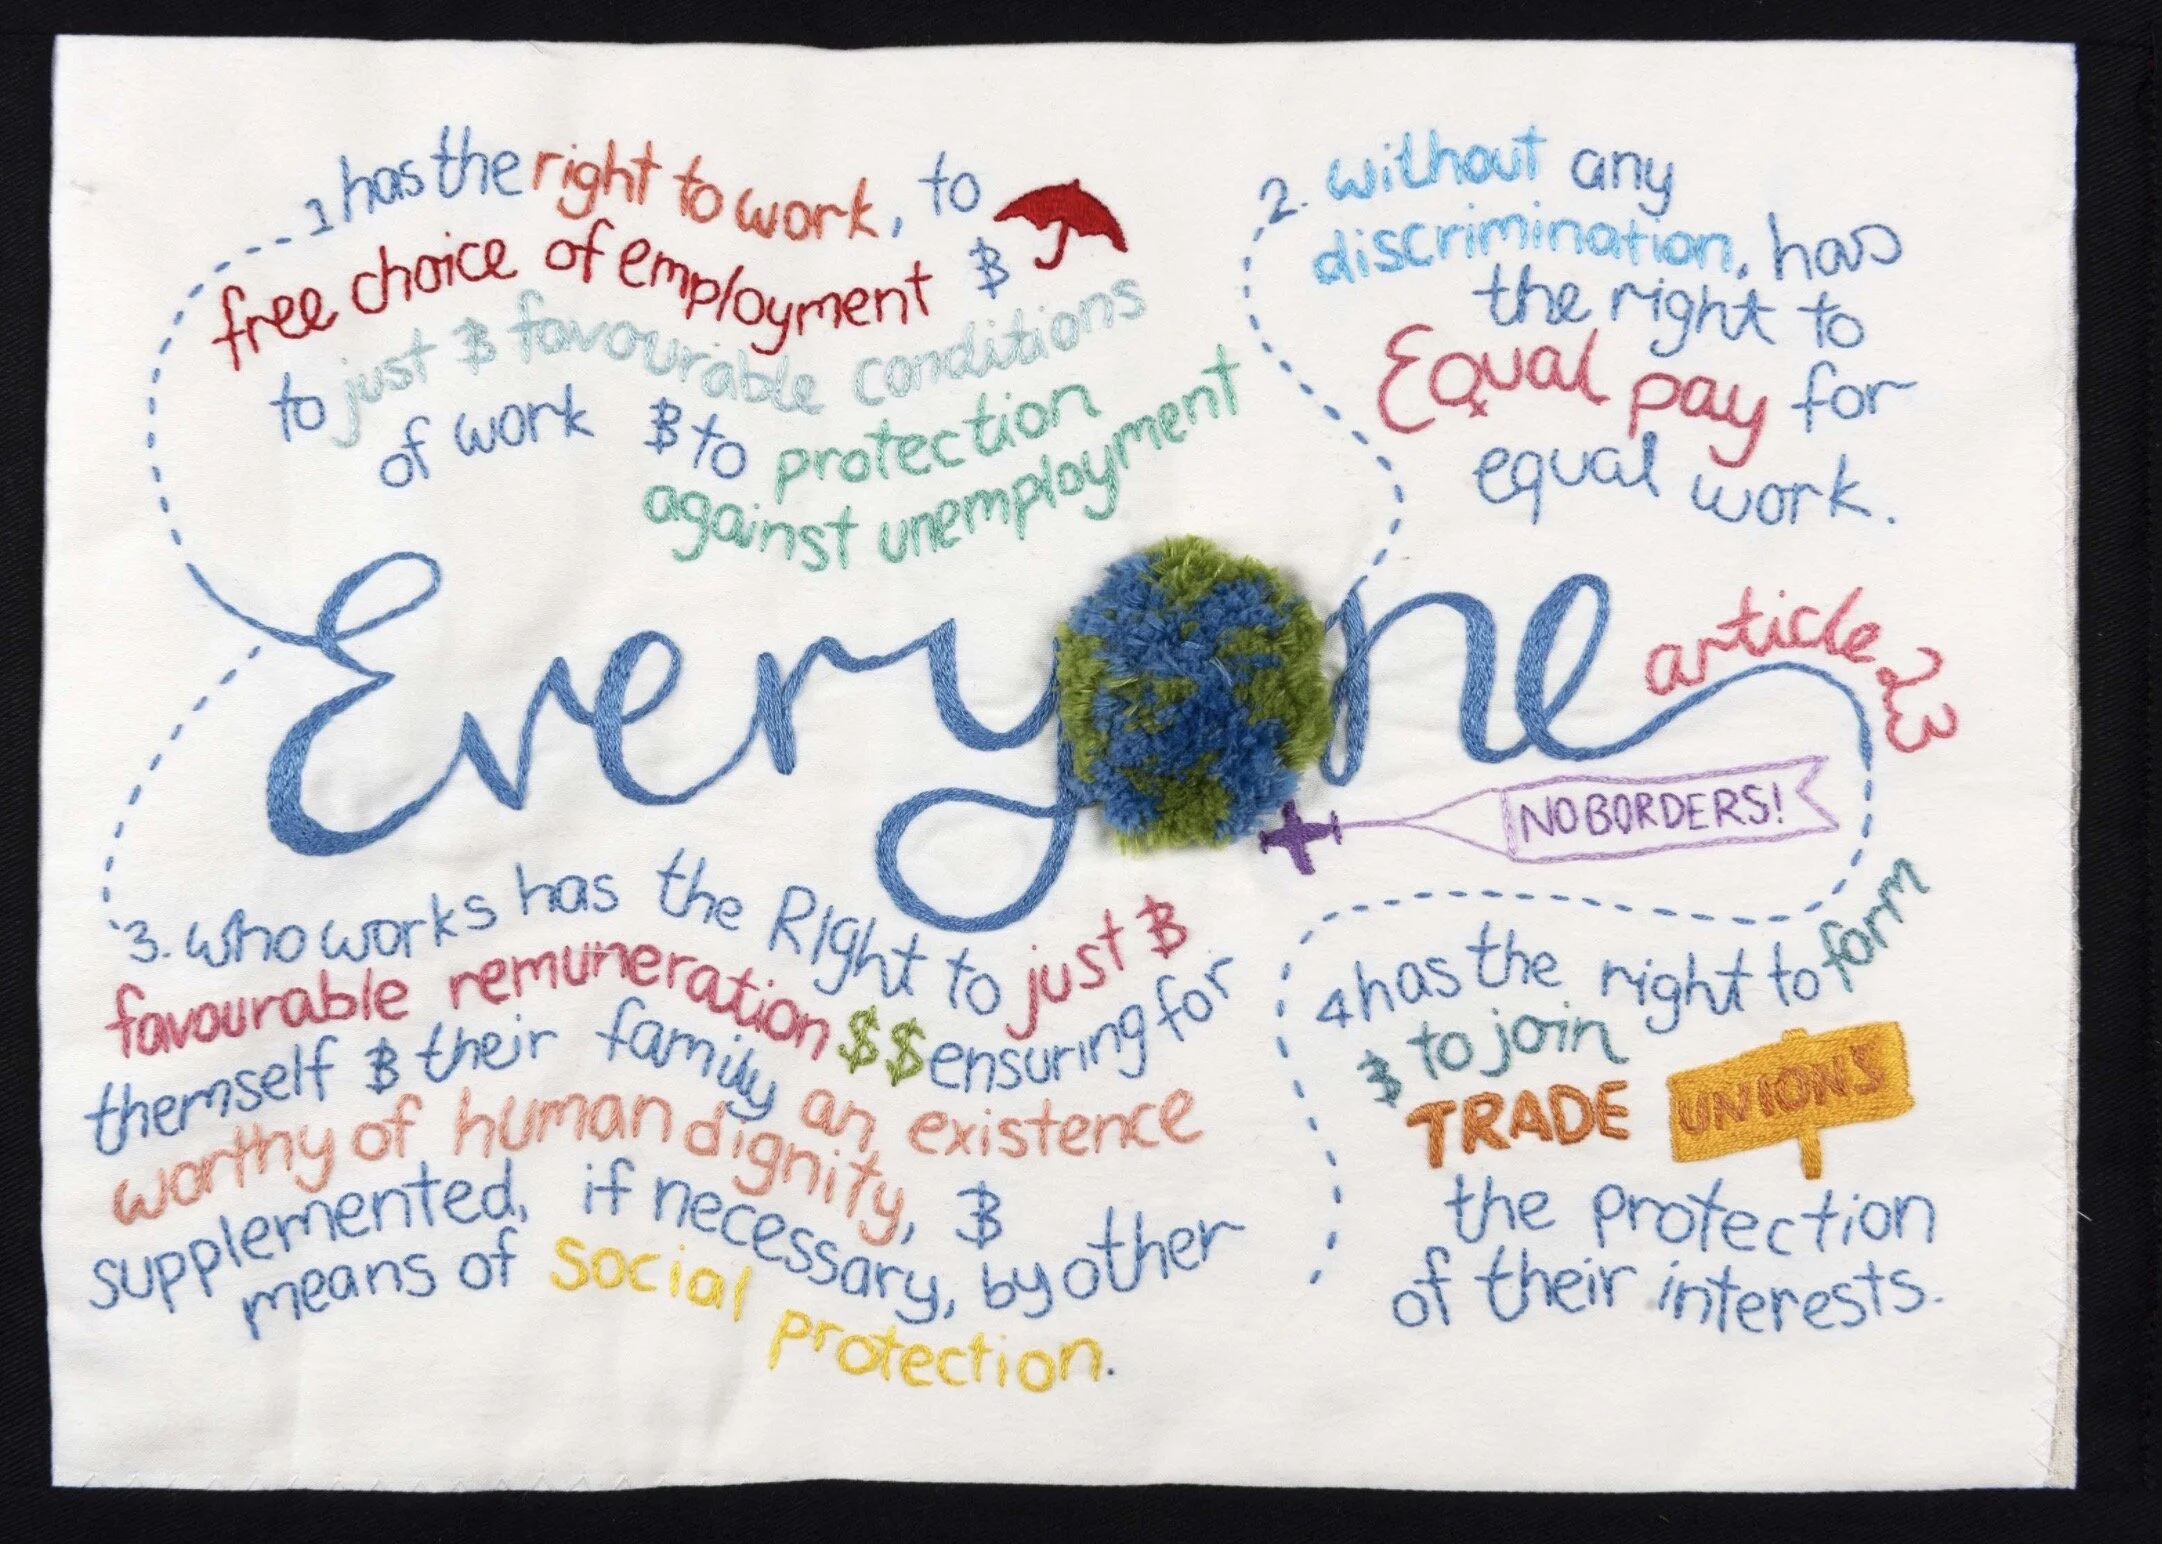 1 has the right to work, to
free choice of employment &
to just & favourable conditions
of work & to protection
against unemployment
2. without any
discrimination, has
the right to
Equal pay for
equal work.
Everyone
article 23
NO BORDERS!
3. who works has the Right to just &
favourable remuneration $$ ensuring for
themself & their family an existence
worthy of human dignity, &
supplemented, if necessary, by other
means of social
protection.
4 has the right to form
& to join
TRADE UNIONS
the protection
of their interests.